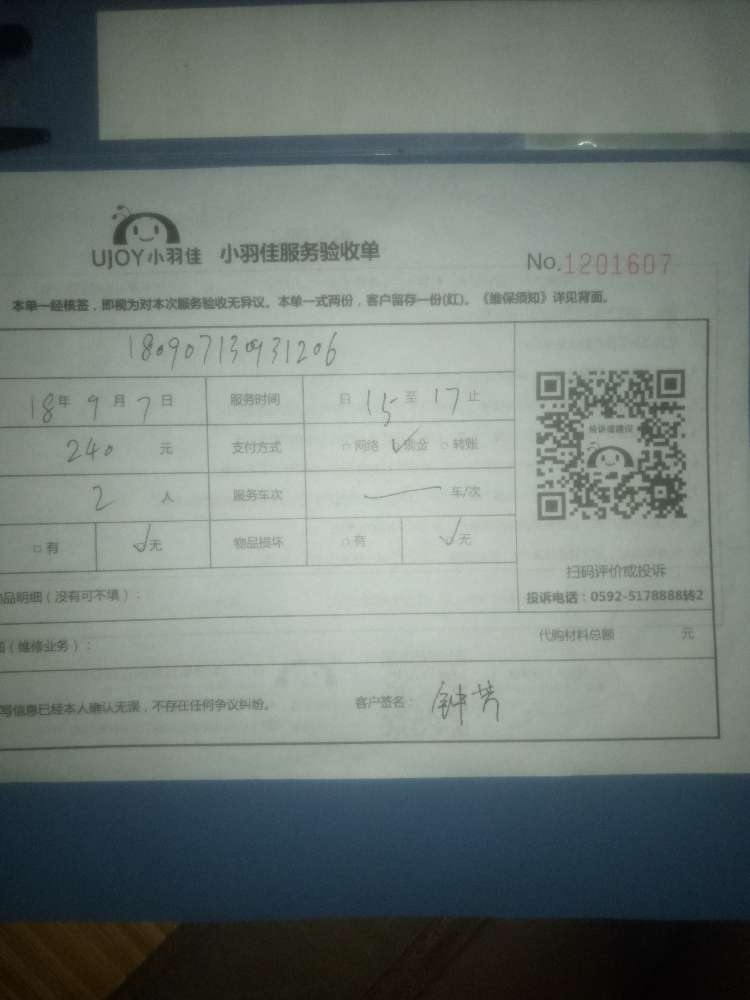 UJOY小羽佳 小羽佳服务验收单
No.1201607
本单一经核签，即视为对本次服务验收无异议。本单一式两份，客户留存一份(红)。《维保须知》详见背面。
180907130931206
18年 9月 7日 服务时间 自 15 至 17 止
240 元 支付方式 网络 现金 转账
2 人 服务车次 车/次
有 无 物品损坏 有 无
扫码评价或投诉
品明细（没有可不填）： 投诉电话：0592-5178888转2
（维修业务）： 代购材料总额 元
写信息已经本人确认无误，不存在任何争议纠纷。 客户签名： 钟芳